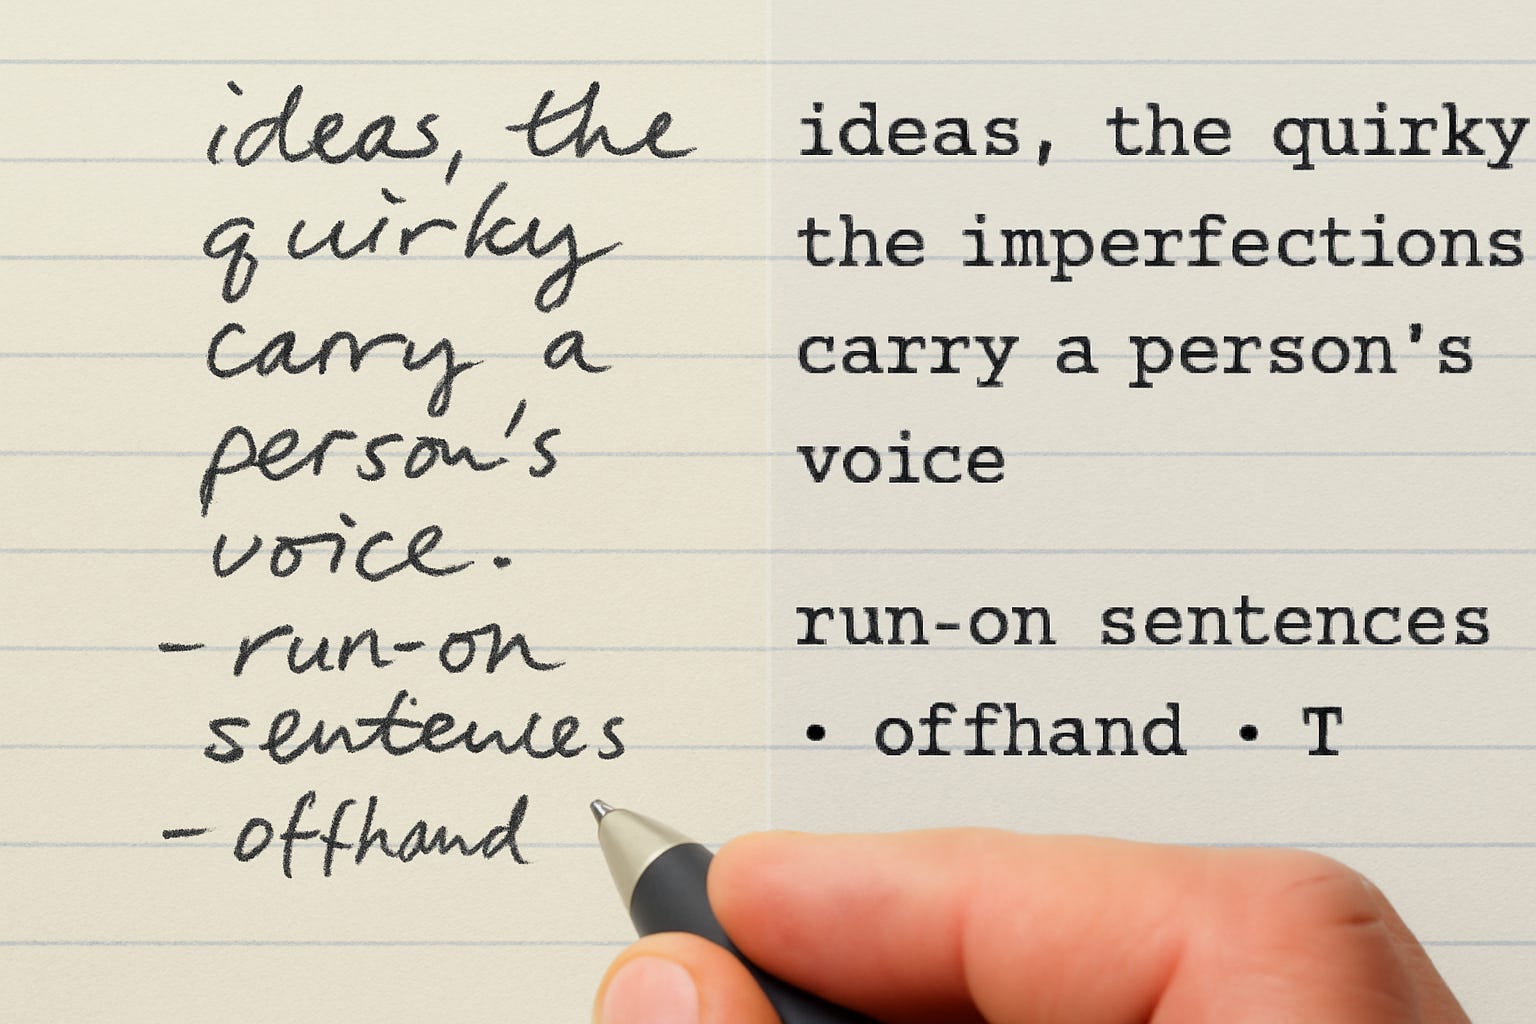 ideas, the
quirky
carry a
person's
voice.
- run-on
sentences
- offhand
ideas, the quirky
the imperfections
carry a person's
voice
run-on sentences
• offhand • T